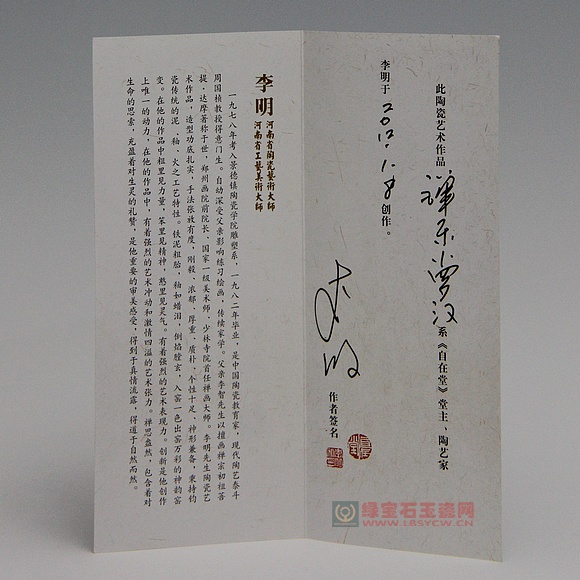 此陶瓷艺术作品禅乐罗汉系《自在堂》堂主、陶艺家
李明于2012.1.8创作。
李明
作者签名
李明
河南省陶瓷藝術大师
河南省工藝美術大师
一九七八年考入景德镇陶瓷学院雕塑系，一九八二年毕业，是中国陶瓷教育家、现代陶艺泰斗
周国桢教授得意门生。自幼深受父亲影响练习绘画，传续家学。父亲李智先生以擅画禅宗初祖菩
提·达摩著称于世，郑州画院前院长、国家一级美术师、少林寺院首任禅画大师。李明先生陶瓷艺
术作品，造型功底扎实，手法张放有度，刚毅、浓郁、厚重、质朴、个性十足、神形兼备，秉持钧
瓷传统的泥、釉、火之工艺特性。铁泥粗胎，釉如蜡泪，倒焰膛玄，入窑一色出窑万彩的神韵窑
变。在他的作品中粗里见力量，笨里见精神，憨里见灵气。有着强烈的艺术表现力。创新是他创作
上唯一的动力，在他的作品中，有着强烈的艺术冲动和激情四溢的艺术张力。禅思盎然，包含着对
生命的思索，充盈着对生灵的礼赞，是他重要的审美感受，得到于真情流露，得道于自然而然。
绿宝石玉瓷网
WWW.LBSYCW.CN